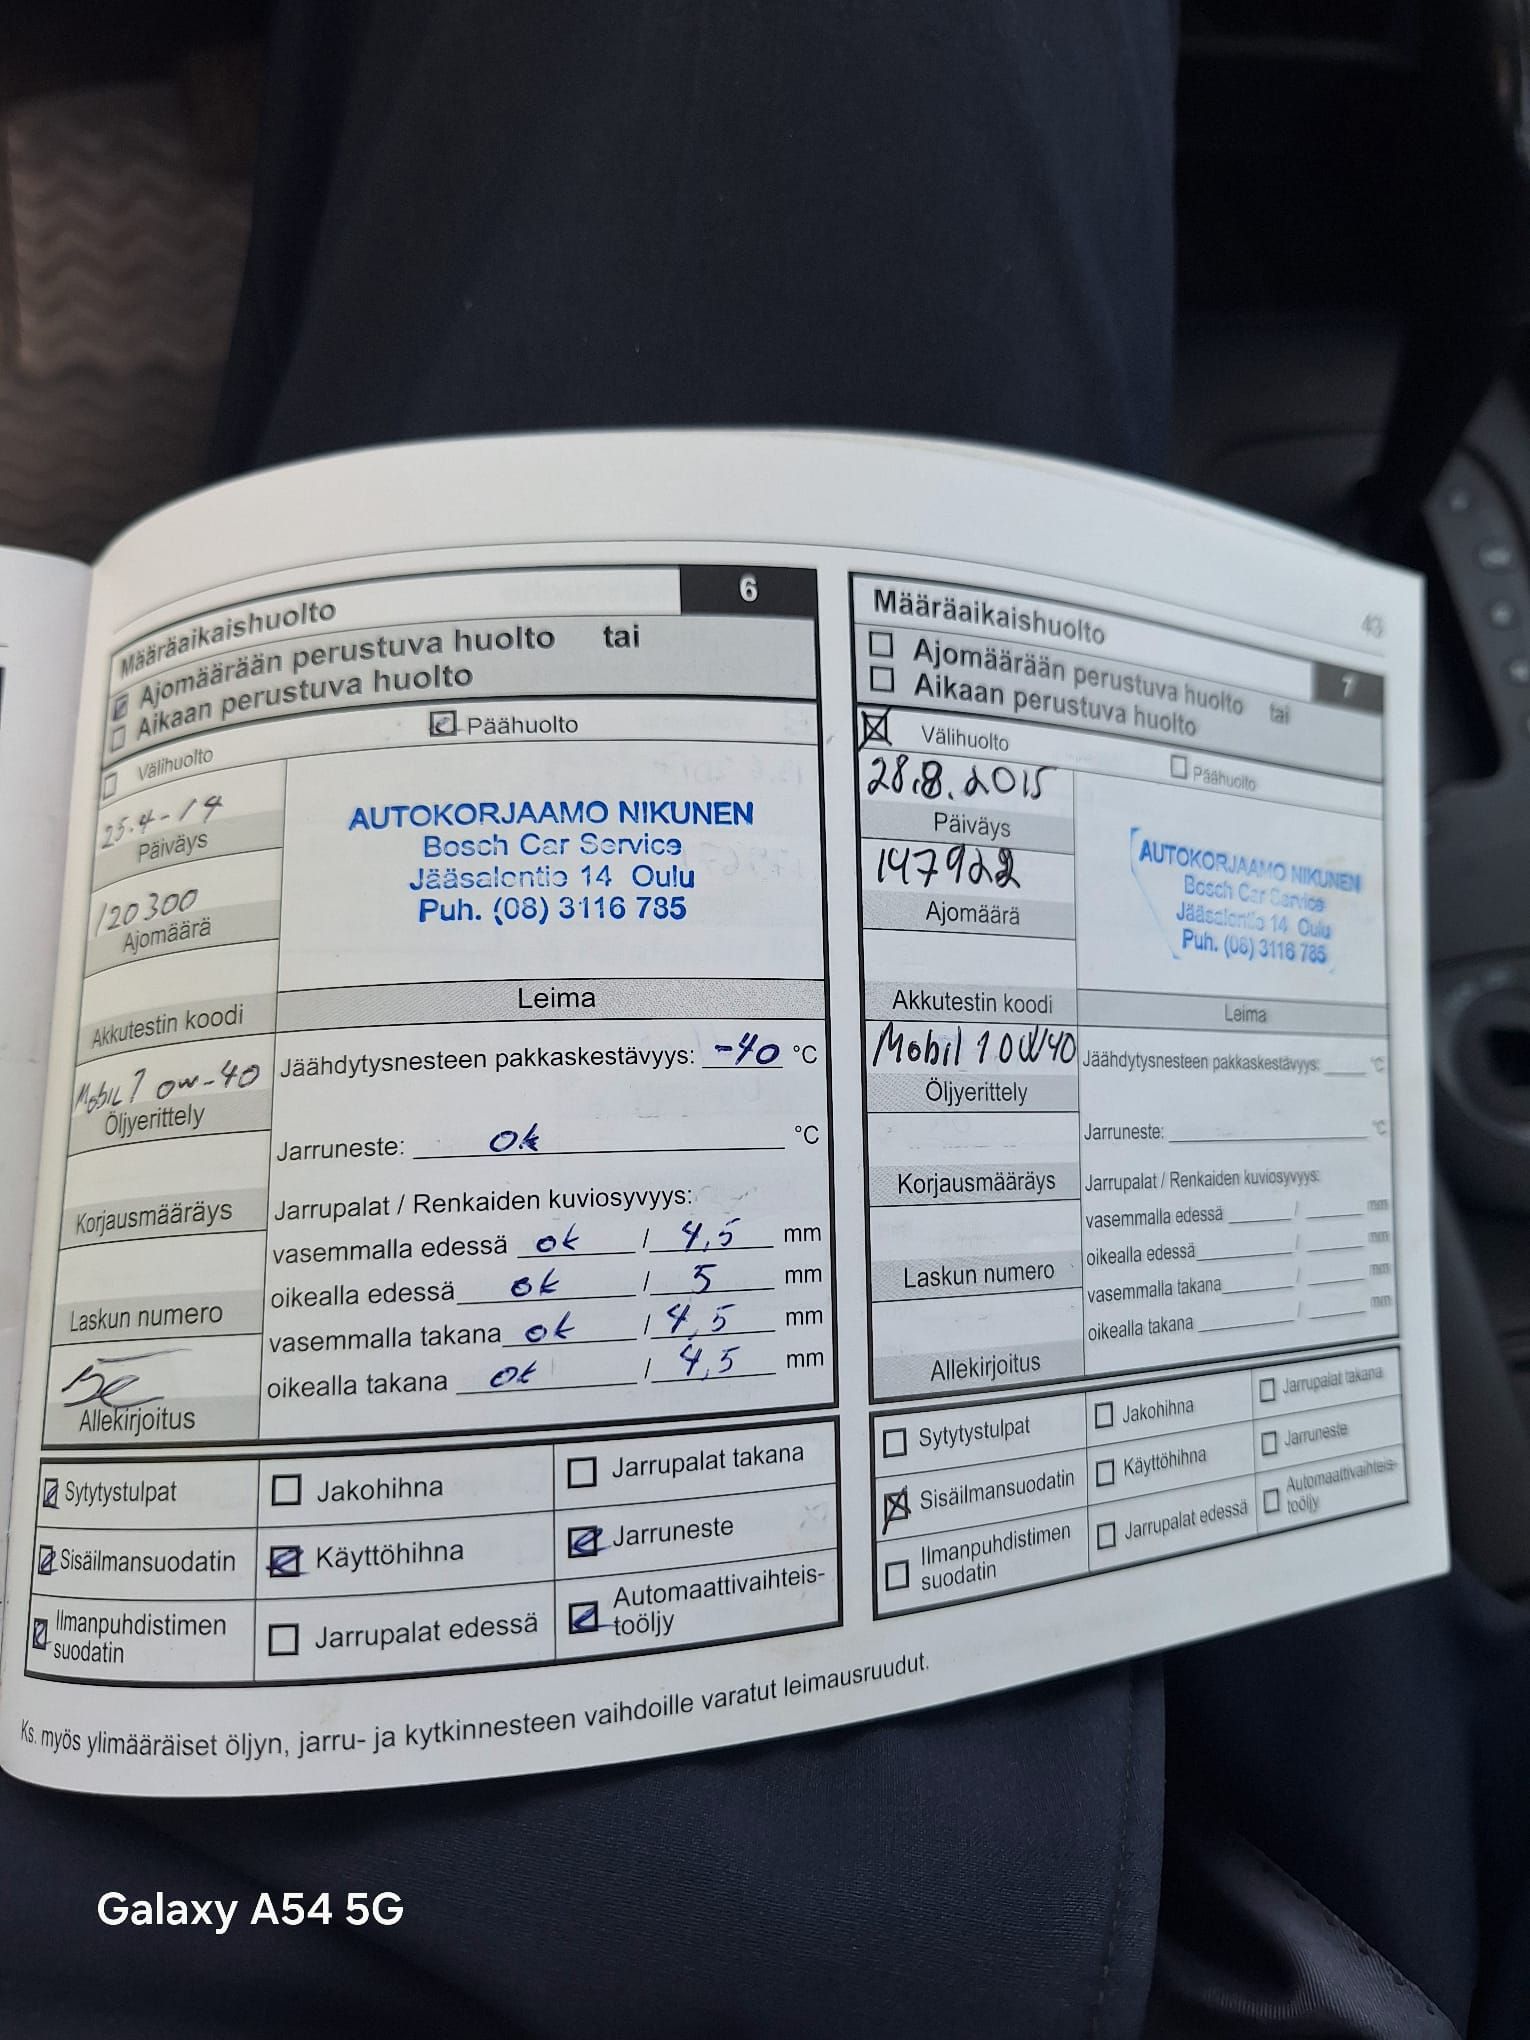 Määräaikaishuolto 6
Ajomäärään perustuva huolto tai
Aikaan perustuva huolto
Välihuolto Päähuolto
25.4-14
Päiväys
120300
Ajomäärä
AUTOKORJAAMO NIKUNEN
Bosch Car Service
Jääsalontie 14 Oulu
Puh. (08) 3116 785
Leima
Akkutestin koodi
Mobil 1 0W-40
Öljyerittely
Korjausmääräys
Laskun numero
Allekirjoitus
Jäähdytysnesteen pakkaskestävyys: -40 °C
Jarruneste: ok °C
Jarrupalat / Renkaiden kuviosyvyys:
vasemmalla edessä ok / 4,5 mm
oikealla edessä ok / 5 mm
vasemmalla takana ok / 4,5 mm
oikealla takana ok / 4,5 mm
Sytytystulpat Jakohihna Jarrupalat takana
Sisäilmansuodatin Käyttöhihna Jarruneste
Ilmanpuhdistimen
suodatin
Jarrupalat edessä
Automaattivaihteis-
toöljy
43
Määräaikaishuolto 7
Ajomäärään perustuva huolto tai
Aikaan perustuva huolto
Välihuolto Päähuolto
28.8.2015
Päiväys
147922
Ajomäärä
AUTOKORJAAMO NIKUNEN
Bosch Car Service
Jääsalontie 14 Oulu
Puh. (08) 3116 785
Leima
Akkutestin koodi
Mobil 1 0W40
Öljyerittely
Korjausmääräys
Laskun numero
Allekirjoitus
Jäähdytysnesteen pakkaskestävyys: °C
Jarruneste: °C
Jarrupalat / Renkaiden kuviosyvyys:
vasemmalla edessä / mm
oikealla edessä / mm
vasemmalla takana / mm
oikealla takana / mm
Sytytystulpat Jakohihna Jarrupalat takana
Sisäilmansuodatin Käyttöhihna Jarruneste
Ilmanpuhdistimen
suodatin
Jarrupalat edessä
Automaattivaihteis-
toöljy
Ks. myös ylimääräiset öljyn, jarru- ja kytkinnesteen vaihdoille varatut leimausruudut.
Galaxy A54 5G